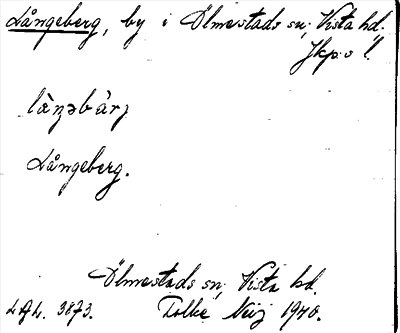 Långeberg, by i Ölmestads sn, Vista hd.
Jkp:s l.
Långeberg.
Ölmestads sn, Vista hd.
LAL. 3873. Folke Neij 1940.